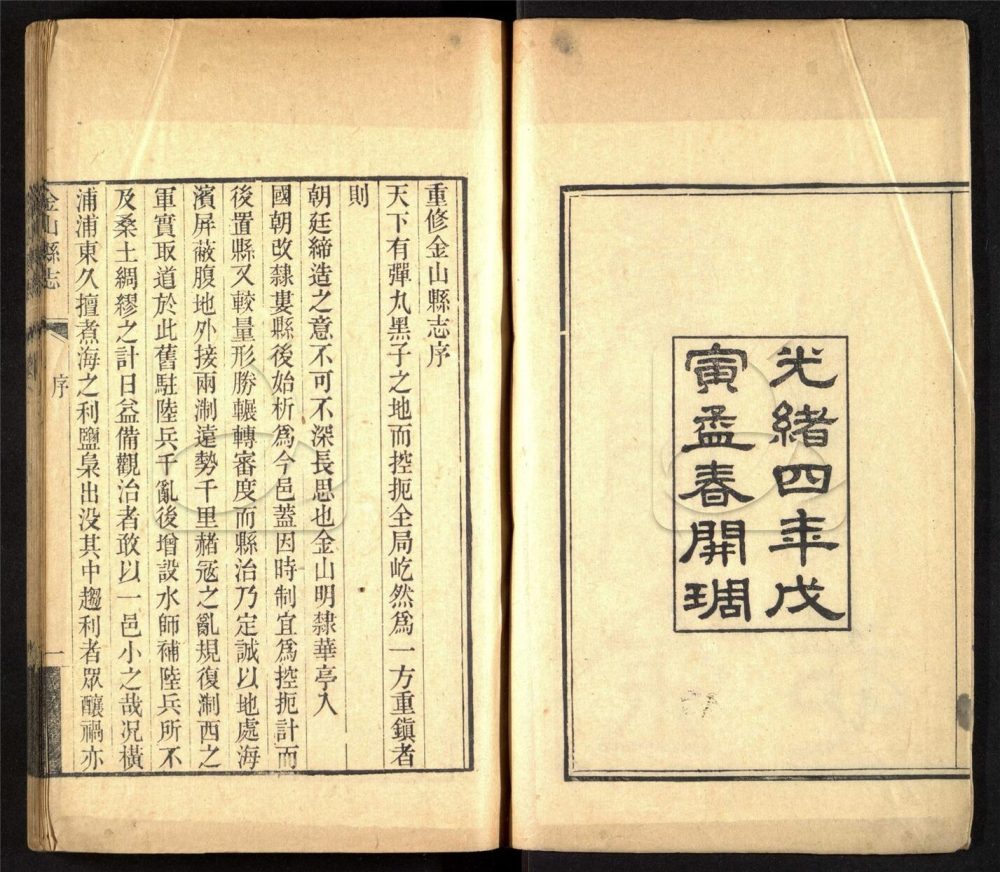 光緒四年戊
寅孟春開琱
重修金山縣志序
天下有彈丸黑子之地而控扼全局屹然爲一方重鎮者
則
朝廷締造之意不可不深長思也金山明隸華亭入
國朝改隸婁縣後始析爲今邑蓋因時制宜爲控扼計而
後置縣又較量形勝輾轉審度而縣治乃定誠以地處海
濱屏蔽腹地外接兩淛遠勢千里赭寇之亂規復淛西之
軍實取道於此舊駐陸兵千亂後增設水師補陸兵所不
及桑土綢繆之計日益備觀治者敢以一邑小之哉況橫
浦浦東久擅煮海之利鹽梟出没其中趨利者眾釀禍亦
金山縣志
序
一